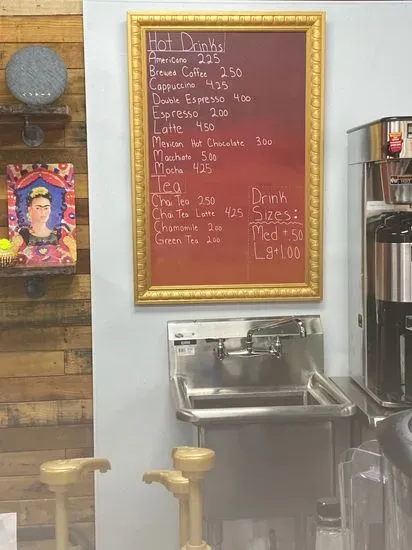 Hot Drinks
Americano 2.25
Brewed Coffee 2.50
Cappuccino 4.25
Double Espresso 4.00
Espresso 2.00
Latte 4.50
Mexican Hot Chocolate 3.00
Macchiato 5.00
Mocha 4.25
Tea
Chai Tea 2.50
Chai Tea Latte 4.25
Chamomile 2.00
Green Tea 2.00
Drink
Sizes:
Med +.50
Lg +1.00